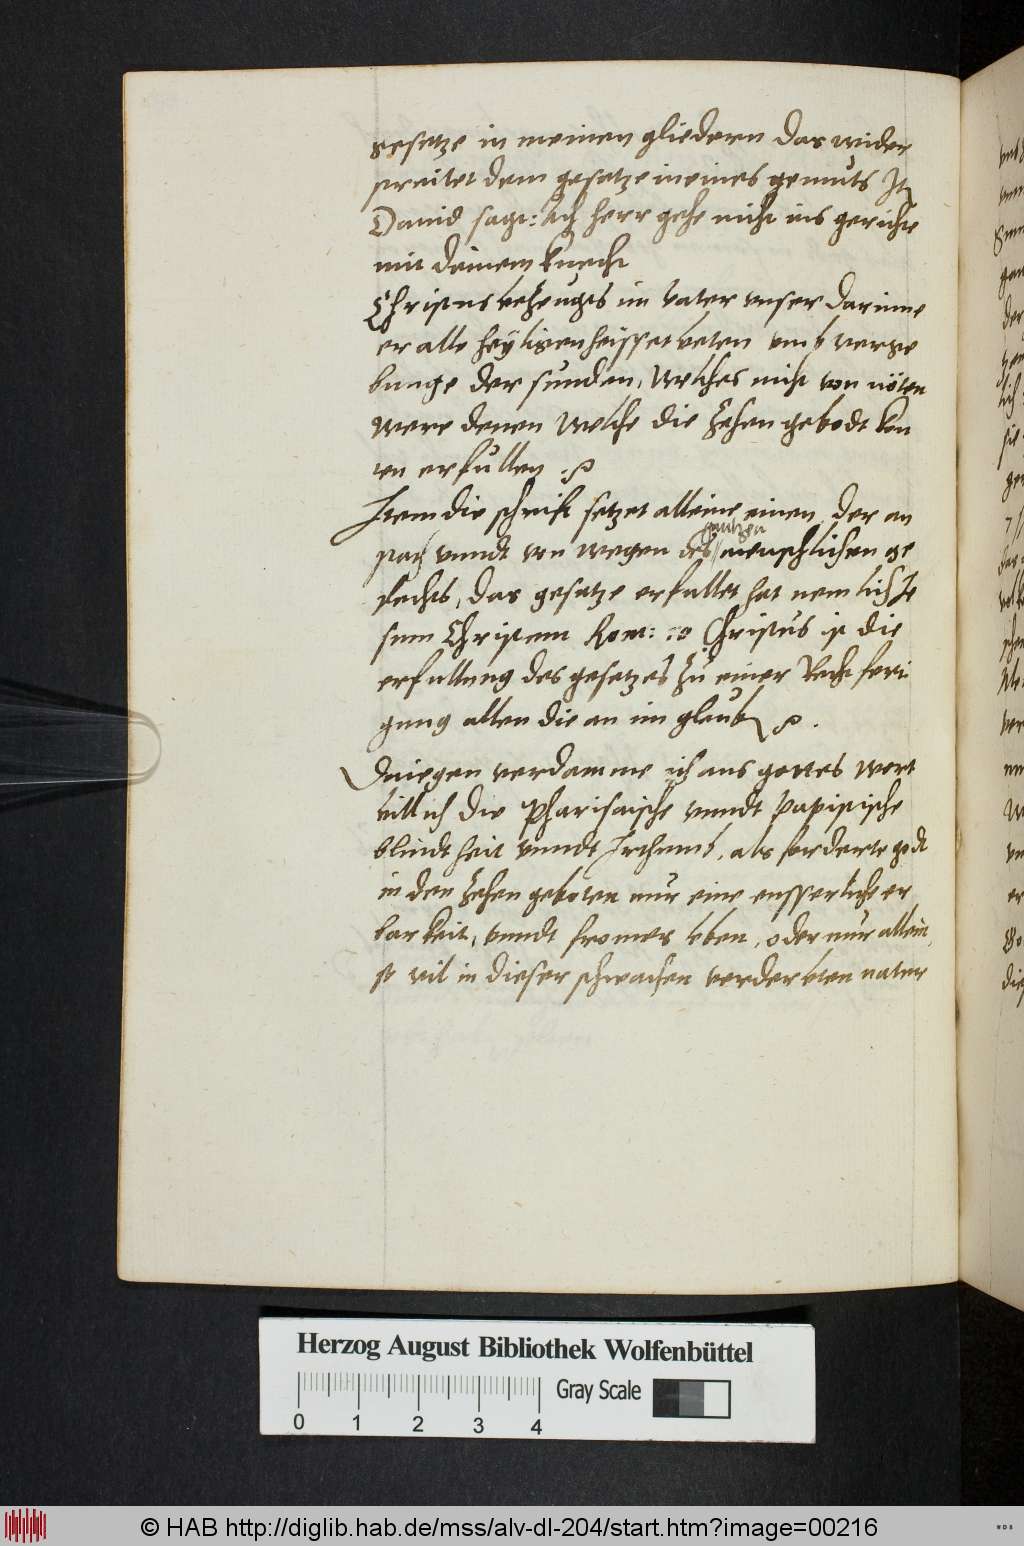 gesetze in meinen gliedern das wider
streitet dem gesetze meines gemuts It
Dauid sagt: Ach herr gehe nicht ins gerichte
mit deinem knecht
Christus bezeugts im vater vnser darinne
er alle heyligen heisset beten vmb verge
bunge der sunden, Welches nicht von nöten
were denen Welche die zehen gebodt kon
ten erfullen
Item die schrift setzet alleine einen der an
stat vnndt von wegen des gantzen menschlichen ge
slechts, das gesetze erfullet hat nemlich Je
sum Christum Rom: 10 Christus ist die
erfullung des gesetzes zu einer Rechtferti
gung allen die an im glaub
Dniegen verdamme ich aus gottes wort
billich die Pharisaische vnndt papistische
blindtheit vnndt Irthumb, als forderte godt
in den zehen geboten nur eine eusserliche er
barkeit, vnndt fromes leben, oder nur allein
so vil in dieser schwachen verderbten natur
Herzog August Bibliothek Wolfenbüttel
Gray Scale
0 1 2 3 4
© HAB http://diglib.hab.de/mss/alv-dl-204/start.htm?image=00216